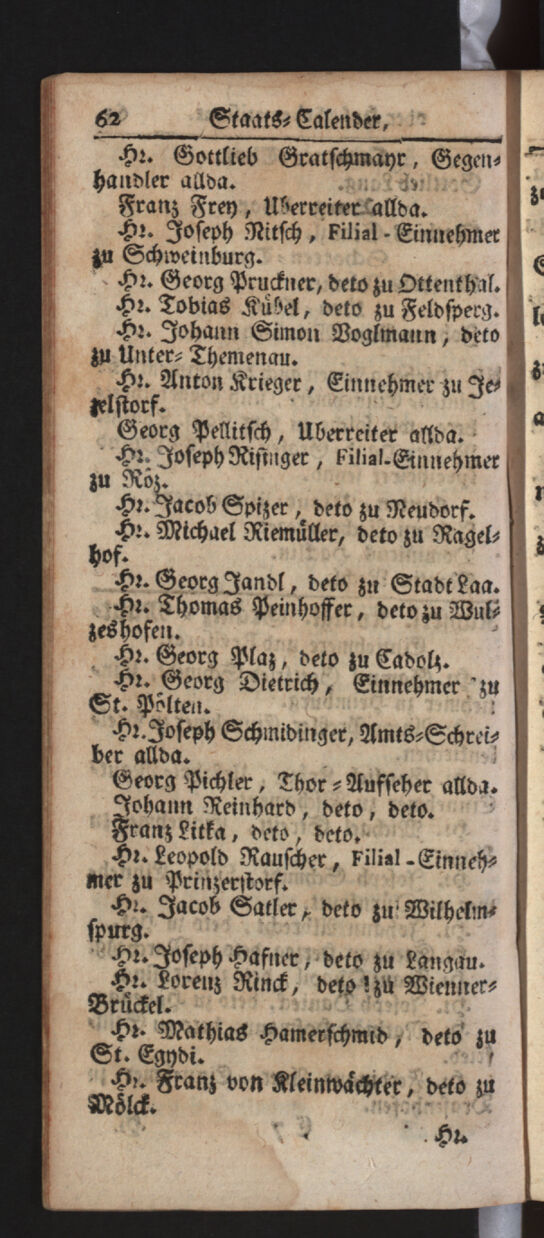 62 Staats-Calender,
Hr. Gottlieb Gratschmayr, Gegen-
handler allda.
Franz Frey, Uberreiter allda.
Hr. Joseph Nitsch, Filial-Einnehmer
zu Schweinburg.
Hr. Georg Pruckner, deto zu Ottenthal.
Hr. Tobias Kübel, deto zu Feldsperg.
Hr. Johann Simon Voglmann, deto
zu Unter-Themenau.
Hr. Anton Krieger, Einnehmer zu Je-
zelstorf.
Georg Pellitsch, Uberreiter allda.
Hr. Joseph Risinger, Filial-Einnehmer
zu Röz.
Hr. Jacob Spizer, deto zu Neudorf.
Hr. Michael Riemüller, deto zu Ragel-
hof.
Hr. Georg Jandl, deto zu Stadt Laa.
Hr. Thomas Peinhoffer, deto zu Wul-
zeshofen.
Hr. Georg Plaz, deto zu Cadolz.
Hr. Georg Dietrich, Einnehmer zu
St. Pölten.
Hr. Joseph Schmidinger, Amts-Schrei-
ber allda.
Georg Pichler, Thor-Aufseher allda.
Johann Reinhard, deto, deto.
Franz Litka, deto, deto.
Hr. Leopold Rauscher, Filial-Einneh-
mer zu Prinzerstorf.
Hr. Jacob Satler, deto zu Wilhelm-
spurg.
Hr. Joseph Hafner, deto zu Langau.
Hr. Lorenz Rinck, deto zu Wienner-
Brückel.
Hr. Mathias Hamerschmid, deto zu
St. Egydi.
Hr. Franz von Kleinwächter, deto zu
Mölck.
Hr.